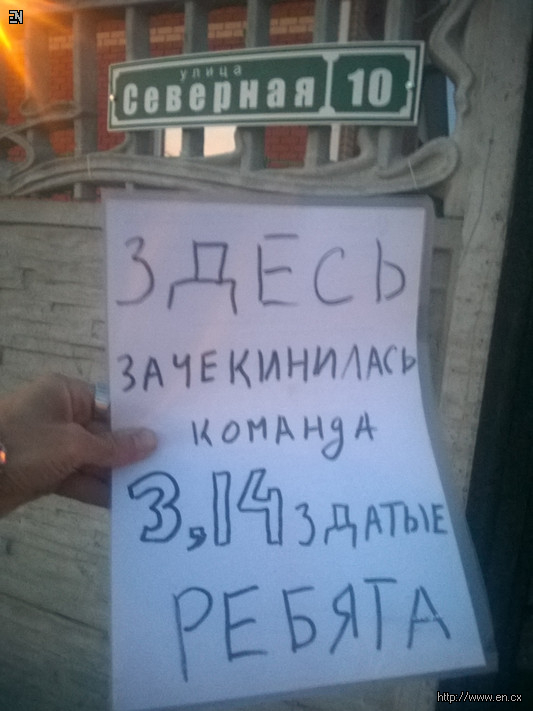 EN
улица
Северная 10
ЗДЕСЬ
ЗАЧЕКИНИЛАСЬ
КОМАНДА
3,14ЗДАТЫЕ
РЕБЯТА
http://www.en.cx